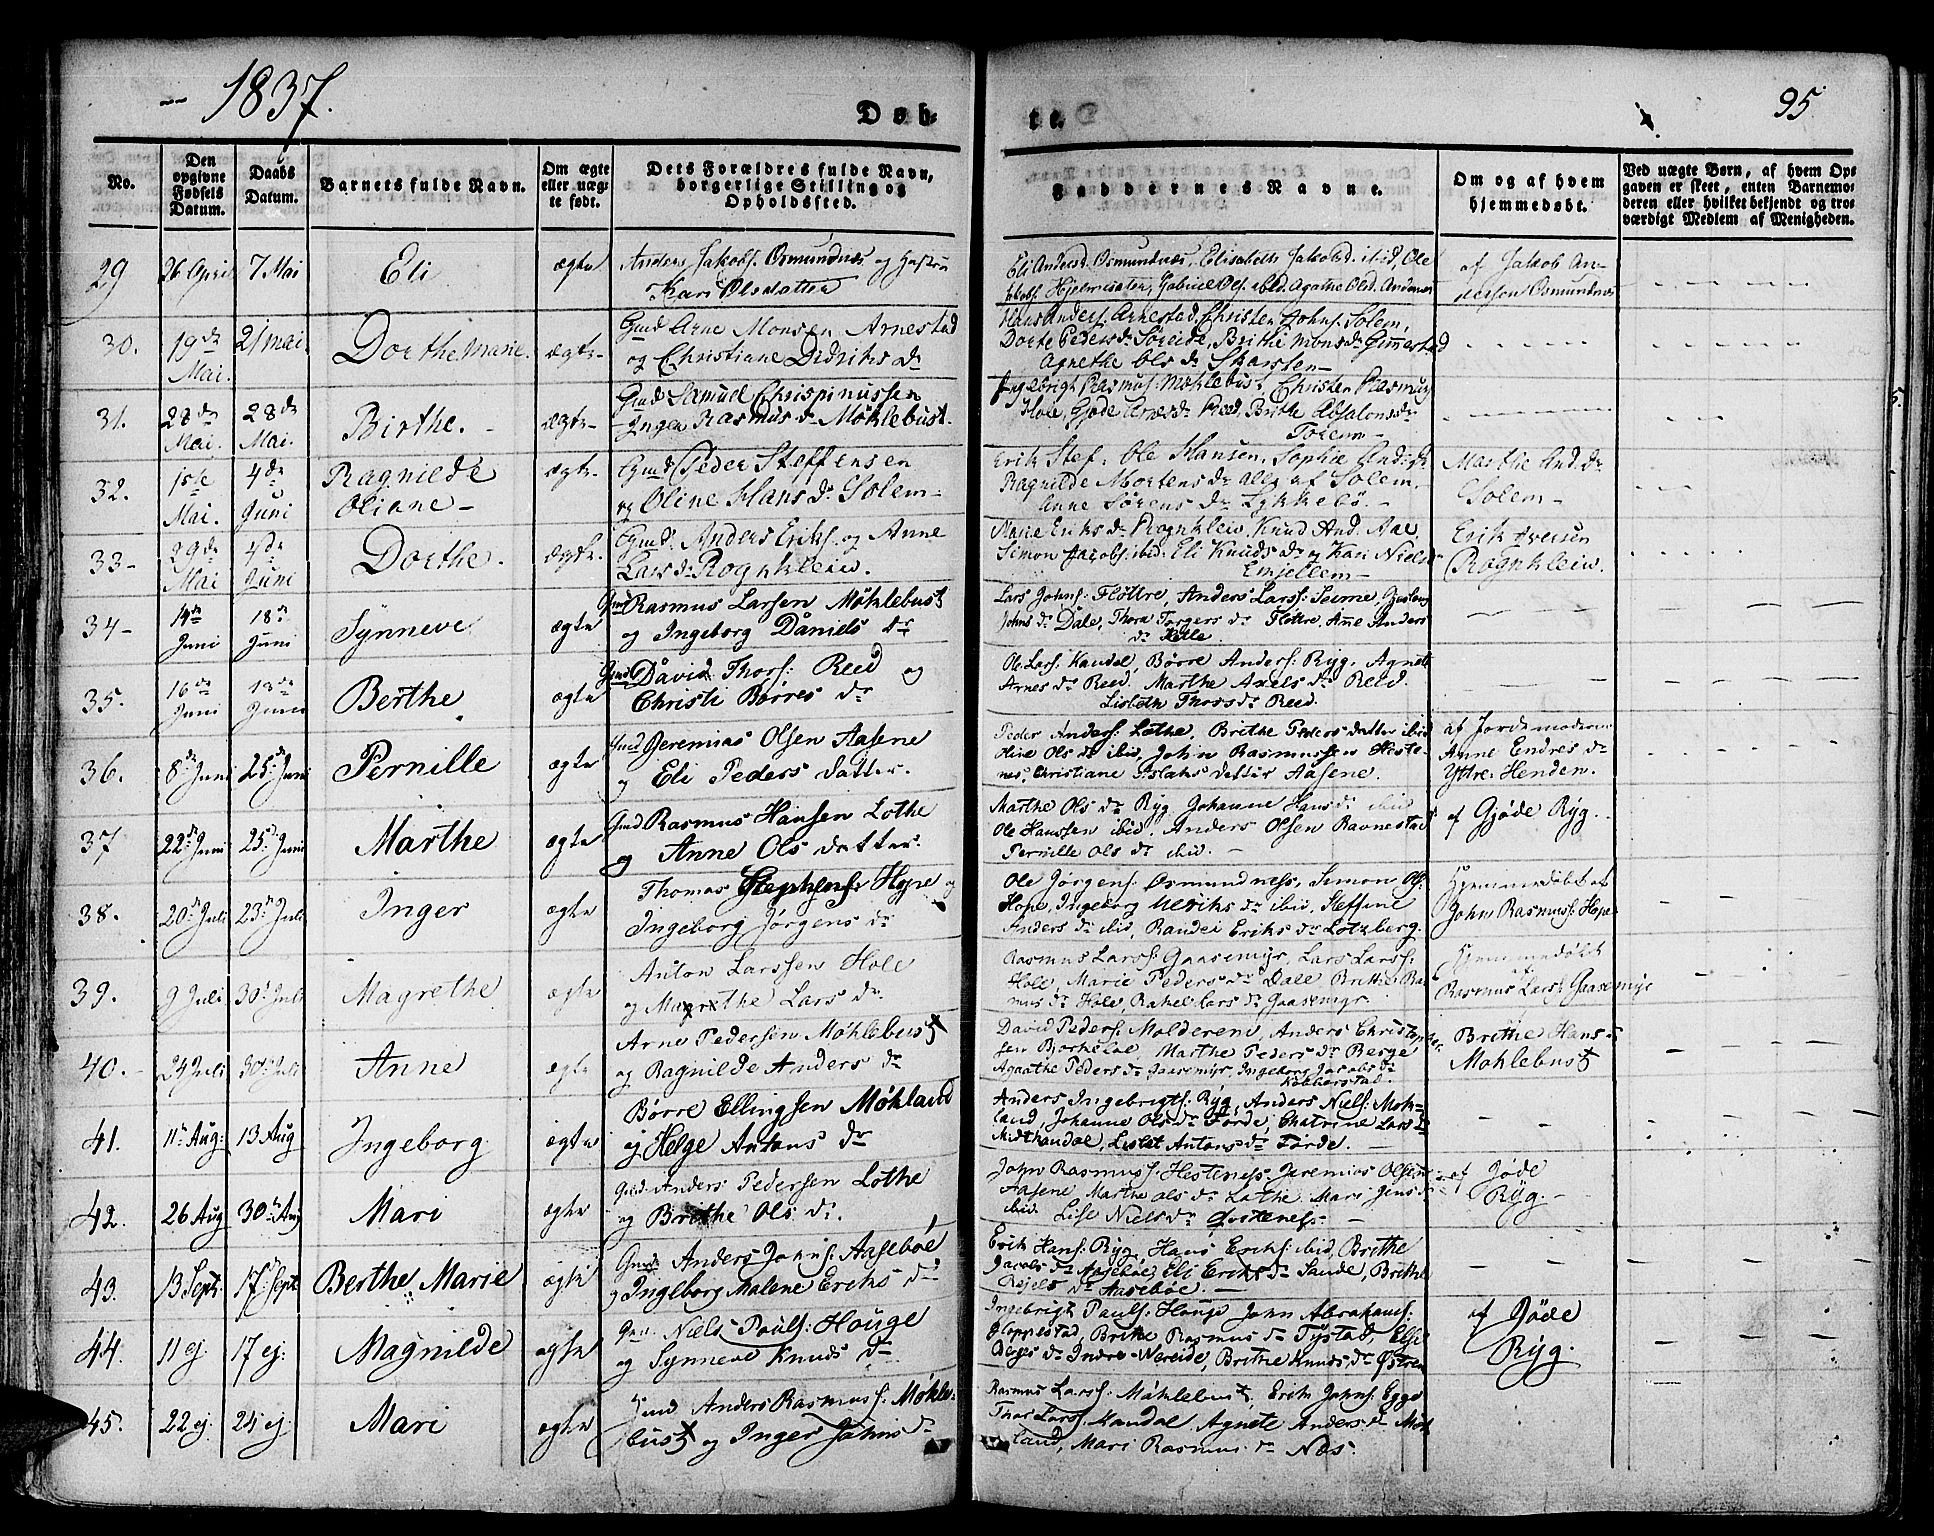 1837.
Døb-
te.
95
No.
Den opgivne Fødsels Datum.
Daabs Datum.
Barnets fulde Navn.
Om ægte eller uægte født.
Dets Forældres fulde Navn, borgerlige Stilling og Opholdssted.
Faddernes Navne.
Om og af hvem hjemmedøbt.
Ved uægte Børn, af hvem Opgaven er skeet, enten Barnemoderen eller hvilket bekjendt og troværdigt Medlem af Menigheden.
29 26 April 7 Mai Eli ægte Anders Jakobs. Osmundnes og Hustru
Kari Olsdatter
Eli Andersd. Osmundnes, Elisabeth Jakobd. ibid, Ole
Jakobs. Hjelmesæter, Gabriel Ols. ibid. Agathe Olsd. Andenes
af Jakob An-
dersen Osmundnes
30. 19de Mai. 21 mai. Dorthe Marie. ægte- Gmd Arne Monsen Arnestad
og Christiane Didriks dr
Hans Anders. Arnestad, Christen Johns. Solem,
Dorte Peders dr Søreide, Brithe Mons dr Gimmestad
Agnethe Ols dr Skarsten-
31. 28de Mai. 28de Mai. Birthe. - ægte- Gmd Samuel Chrispinussen
Inger Rasmus dr Møklebust.
Ingebrigt Rasmus. Møklebust Christen Rasmus
Hole, Gjøde Arnes dr Reed, Brithe Absalons dr
Torem-
32. 1ste Mai. 4de Juni Ragnilde
Oliane- ægte. Gmd Peder Steffensen
og Oline Hans dr Solem-
Erik Stef. Ole Hansen, Sophie And. dr
Ragnilde Mortens dr alle af Solem,
Anne Sørens dr Lykkebø. -
Marthe And. dr
Solem-
33- 29de Mai 4de Juni Dorthe. ægte. Gmd. Anders Eriks. og Anne
Lars dr Rognkleiv.
Marie Eriks dr Rognkleiv, Knud And. Aae,
Simon Jacobs. ibid. Eli Knuds dr og Kari Niels
Emjellem-
Erik Iversen
Rognkleiv.
34- 14de Juni 18de Juni Synneve ægte Gmd Rasmus Larsen Møklebust
og Ingeborg Daniels dr
Lars Johns. Fløttre, Anders Lars. Seime,
Johns dr Dale, Thora Torgers dr Fløttre, Anne Anders
dr
35. 16de Juni 18de Juni Berthe ægte Gmd David Thors: Reed og
Christi Børres dr
Ole Lars: Kandal, Børre Anders: Ryg, Agnete
Arnes dr Reed, Marthe Axels dr Reed.
Lisbeth Thors dr Reed.
36. 8de Juni 25de Juni Pernille ægte Gmd Jeremias Olsen Aasene
og Eli Peders datter.
Peder Anders: Lothe, Brithe Peders datter ibid
Oline Ols dr ibid, John Rasmussen Heste-
nes, Christiane Islaks datter Aasene.
af Jordemoderen
Anne Endres dr
Yttre: Henden.
37 22de Juni 25de Juni Marthe ægte Gmd Rasmus Hansen Lothe
og Anne Ols datter.
Marthe Ols dr Ryg Johanne Hans dr ibid
Ole Hanssen ibid, Anders Olsen Ravnestad
Pernille Ols dr ibid. -
af Gjøde Ryg.
38. 20de Juli 23de Juli Inger ægte Thomas Stephens. Hope og
Ingeborg Jørgens dr
Ole Jørgens: Osmundness, Simon Ols:
Hope, Ingeborg Ulriks dr ibid, Steffine
Anders dr ibid, Randei Eriks dr Lotzberg.
Hjemmedøbt af
John Rasmuss: Hope
39. 9 Juli 30te Juli Magrethe ægte Anton Larssen Hole
og Magrethe Lars dr.
Rasmus Larss: Gaasemyr, Lars Larss:
Hole, Marie Peders dr Dale Brithe Ras-
mus dr Hole, Rakel Lars dr Gaasemyr.
Hjemmedøbt
af
Rasmus Lars: Gaasemyr
40. - 24 Juli 30te Juli Anne ægte Arne Pedersen Møklebust
og Ragnilde Anders dr
David Peders: Molderein, Anders Christopher-
sen Bjorkeloe, Marthe Peders dr Berge
Agathe Peders dr Gaasemyr, Ingeborg Jacobs dr
Kobberstad.
Brithe Hans dr
Møklebust
41. 11te Aug: 13 Aug Ingeborg ægte Børre Ellingsen Møkland
og Helge Antons dr
Anders Ingebrigts: Ryg, Anders Niels: Møk-
land, Johanne Ols dr Førde, Chatrine Lars dr
Midthandal, Lisbet Antons dr Førde. -
42. 26 Aug 30te Aug Mari ægte Gmd. Anders Pedersen Lothe
og Brithe Ols dr.
John Rasmuss: Hesteness. Jeremias Olsen
Aasene Marthe Ols dr Lothe Mari Jens dr
ibid. Lise Niels dr
af Jøde
Ryg. -
43. 13 Sept. 17de Sept Berthe Marie ægte Gmd. Anders Johns: Aasebøe
og Ingeborg Malene Eriks dr
Erik Hans: Ryg, Hans Eriks: ibid, Brithe
Jacobs dr Aasebøe, Eli Eriks dr Sande, Brithe
dr Aasebøe. -
44. 11 ej. 17 ej: Magnilde ægte Gm. Niels Pouls: Houge
og Synneve Knuds dr
Ingebrigt Pauls: Houge John Abrahams:
Hoppestad, Brithe Rasmus dr Tystad, Else
dr Indre-Nereide, Brithe Knuds dr Østren
af Jøde
Ryg.
45. 22 ej. 24 ej. Mari ægte Gmd Anders Rasmuss: Møkle-
bust og Inger Johns dr
Rasmus Larss: Møklebust, Erik Johns Egge
Thor Larss. Kandal Agnete Anders dr Møk
land, Mari Rasmus dr Næs.